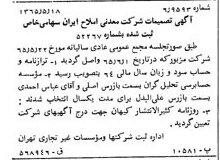 شماره ۶/۹۵۹۳ ۱۳۶۵/۵/۱۸
آگهی تصمیمات شرکت معدنی املاح ایران سهامی خاص
ثبت شده بشماره ۵۲۲۶۷
طبق صورتجلسه مجمع عمومی عادی سالیانه مورخ ۶۵/۵/۲
شرکت مزبور که در تاریخ ۶۵/۵/۱۱ واصل گردید ۱- ترازنامه و
حساب سود و زیان سال مالی ۶۴ بتصویب رسید ۲- موسسه
حسابرسی تدبیر بازرس اصلی و آقای عباس احمدی
بسمت بازرس علی‌البدل برای مدت یکسال انتخاب شدند
۳- روزنامه کثیرالانتشار کیهان جهت درج آگهیهای شرکت
تعیین گردید.
اداره ثبت شرکتها و مؤسسات غیر تجاری تهران
پ ۱۰۵۸۱ الف ۵۶۹۴۸